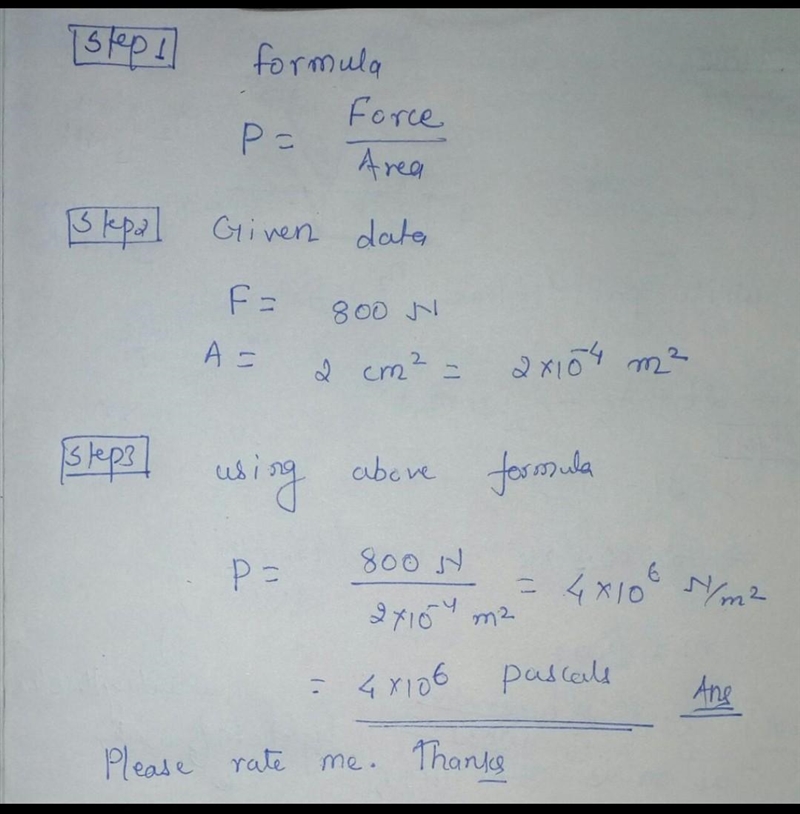 Step1 formula
P = Force / Area
Step2 Given data
F = 800 N
A = 2 cm² = 2×10⁻⁴ m²
Step3 using above formula
P = 800 N / 2×10⁻⁴ m² = 4×10⁶ N/m²
= 4×10⁶ pascals Ans
Please rate me. Thanks